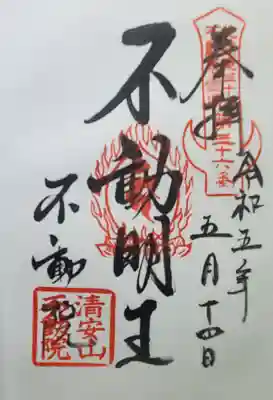 奉拝
令和五年
五月十四日
不動明王
不動院
清安山
不動院